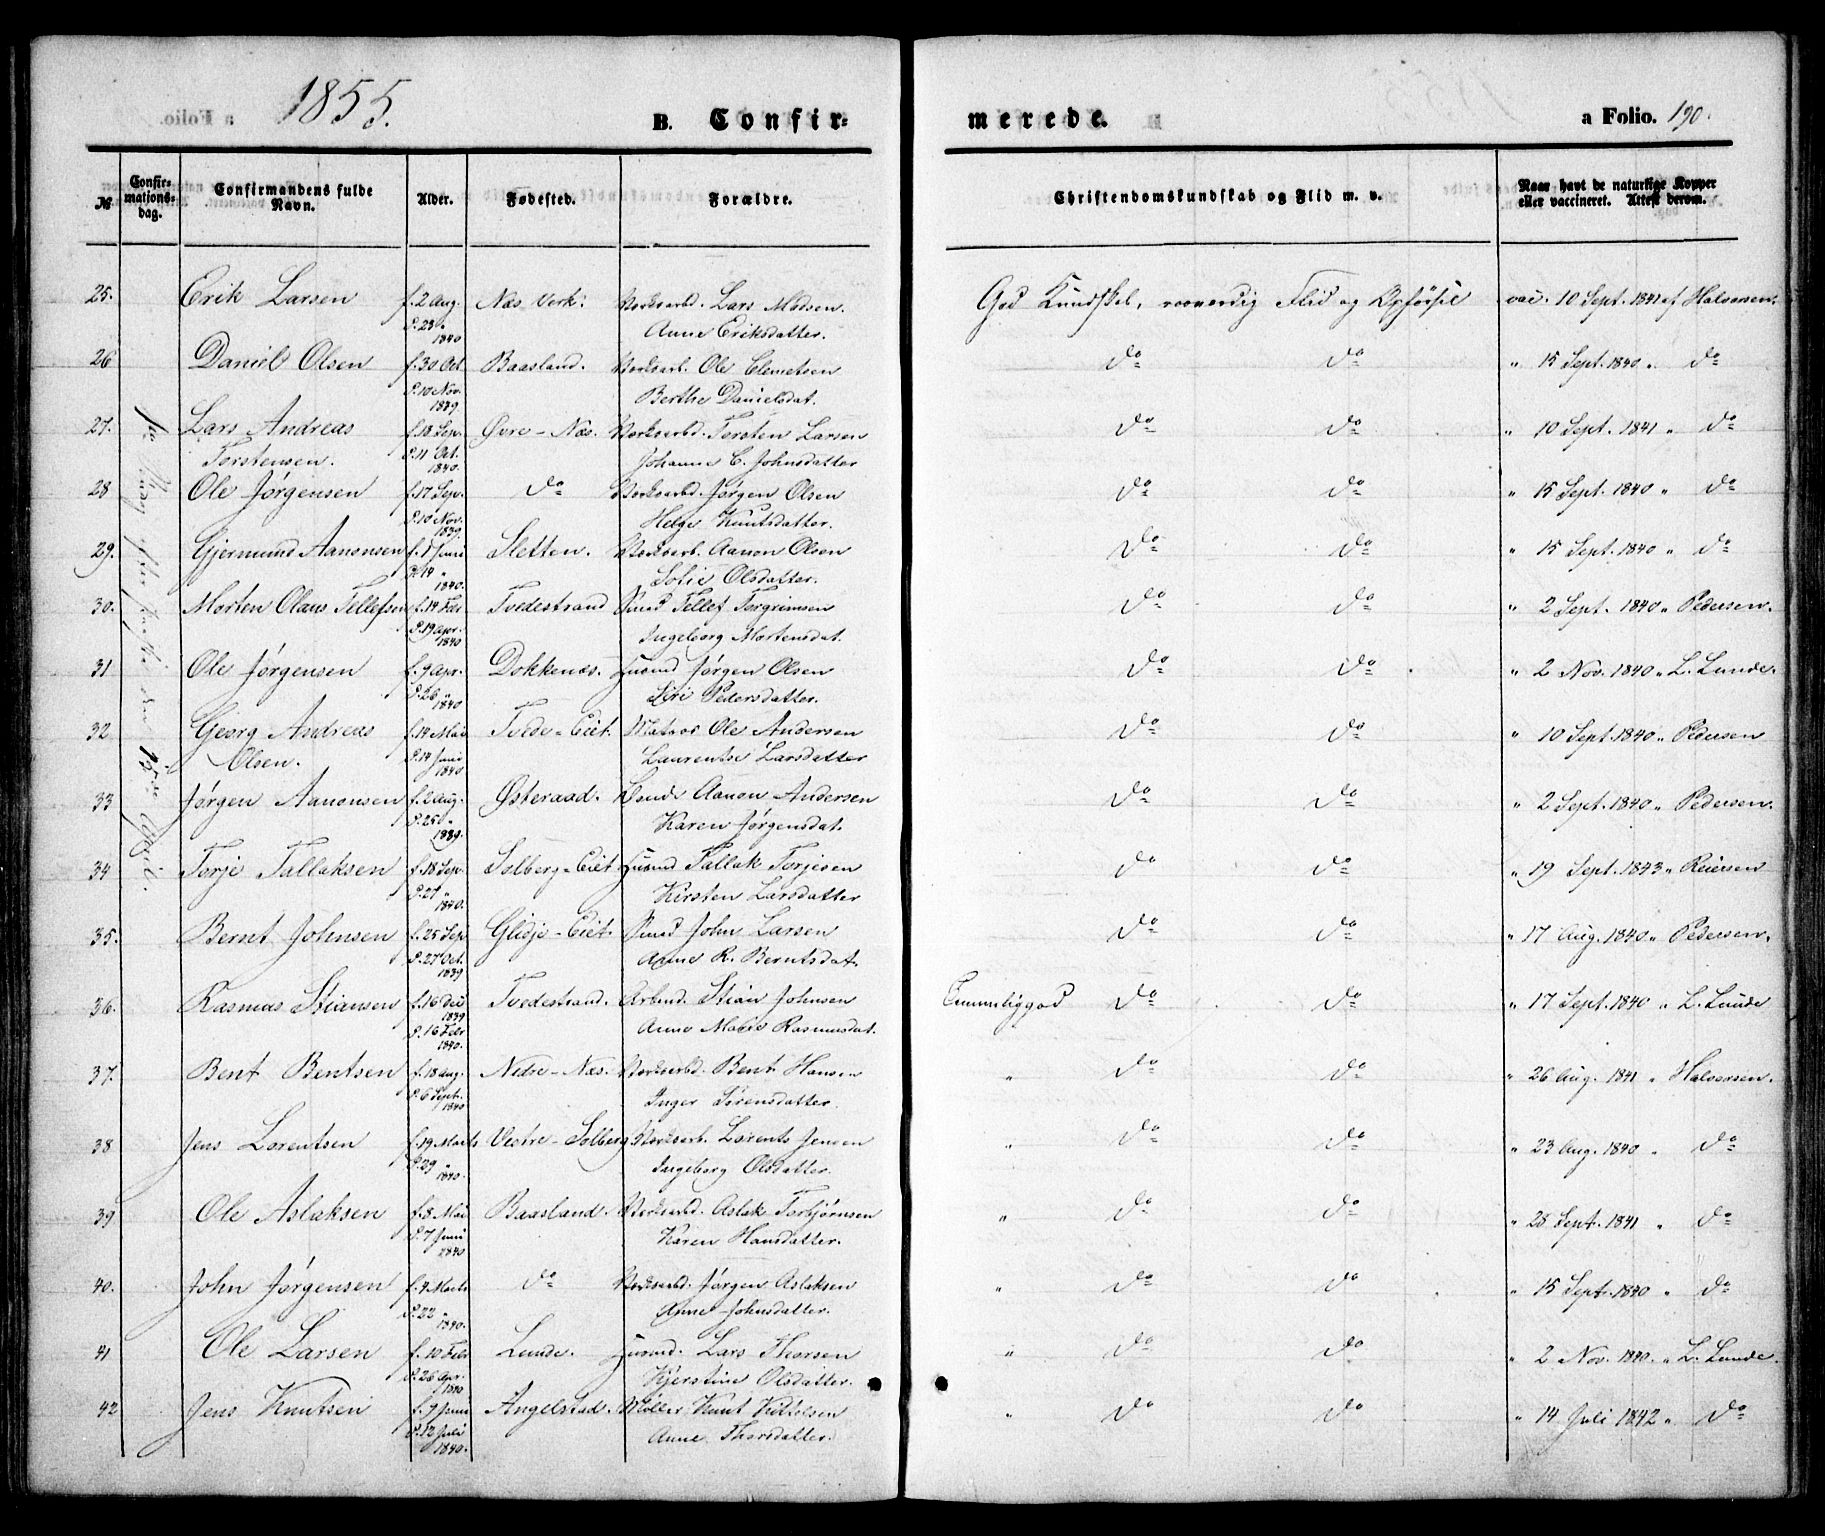 1855.
B. Confirmerede.
a Folio. 190.
№
Confirmationsdag.
Confirmandens fulde Navn.
Alder.
Fødested.
Forældre.
Christendomskundskab og Flid m. v.
Naar havt de naturlige Kopper eller vaccineret. Attest derom.
25. Erik Larsen f. 2 Aug. Næs Verk. Verksarbd. Lars Madsen. God Kundskab, roosverdig Flid og Opførsel vac. 10 Sept. 1841 af Halvorsen.
D. 23 " 1840 Anne Eriksdatter.
26 Daniel Olsen f. 30 Oct. Baasland. Verksarb. Ole Clemetsen do do " 15 Sept. 1840 " do
D. 10 Nov. 1839. Berthe Danielsdat.
27. Lars Andreas f. 18 Sep. Øvre-Næs. Verksarbd. Torsten Larsen do do " 10 Sept. 1841 " do
Torstensen. D. 11 Oct. 1840. Johanne C. Johnsdatter
28 Ole Jørgensen f. 17 Sep. do Verksarbd. Jørgen Olsen do do " 15 Sept. 1840 " do
D. 10 Nov. 1839. Helge Knutsdatter.
29. Gjermund Aanonsen f. 1 Juni Sletten. Verksarb. Aanon Olsen do do " 15 Sept. 1840 " do
D. 14 " 1840. Sofie Olsdatter.
30. Morten Olaus Tellefsen f. 14 Febr Tvedestrand Smed Tellef Torgrimsen do do " 2 Sept. 1840 " Pedersen.
D. 19 Apr. 1840 Ingeborg Mortensdat.
31 Ole Jørgensen f. 9 Apr. Dokkenæs. Husmd Jørgen Olsen do do " 2 Nov. 1840 " L. Lunde.
D. 26 " 1840 Siri Pedersdatter.
32 Georg Andreas f. 14 Mai Tvede-Eiet. Matros Ole Andersen do do " 10 Sept. 1840 " Pedersen
Olsen. D. 14 Juni 1840 Laurentse Larsdatter
33 Jørgen Aanonsen f. 2 Aug. Østeraad. Bonde Aanon Andersen do do " 2 Sept. 1840 " Pedersen.
D. 25 " 1839. Karen Jørgensdat.
34 Torje Tallaksen f. 18 Sep. Solberg-Eiet Husmd Tallak Torjesen do do " 19 Sept. 1843 " Reiersen
D. 27 " 1840. Kirsten Larsdatter
35. Bernt Johnsen f. 25 Sep Glidje-Eiet. Smed John Larsen do do " 17 Aug. 1840 " Pedersen.
D. 27 Oct. 1839 Anne R. Berntsdat.
36. Rasmus Stiansen f. 16 Dec 1839 Tvedestrand. Arbmd. Stian Johnsen Temmeliggod do do " 17 Sept. 1840 " L. Lunde
D. 16 Febr 1840. Anne Marie Rasmusdat.
37. Bent Bentsen f. 18 Aug. Nedre-Næs. Verksarbd. Bent Hansen " do do " 26 Aug. 1841 " Halvorsen.
D. 6 Sept. 1840 Inger Sørensdatter.
38 Jens Lorentsen f. 19 Marts Vestre-Solberg Verksarb. Lorents Jensen " do do " 23 Aug. 1840 " do
D. 29 " 1840. Ingeborg Olsdatter.
39 Ole Aslaksen f. 8 Mai Baasland. Verksarbd. Aslak Torbjørnsen " do do " 28 Sept. 1841 " do
D. 7 Juni 1840 Karen Hansdatter.
40. John Jørgensen f. 4 Marts do Verksarbd. Jørgen Aslaksen " do do " 15 Sept. 1840 " do
D. 22 " 1840. Anne Johnsdatter.
41 Ole Larsen f. 10 Febr Lunde. Husmd. Lars Thorsen " do do " 2 Nov. 1840. " L. Lunde.
D. 26 Apr. 1840 Kjerstine Olsdatter.
42 Jens Knutsen f. 9 Juni Angelstad. Møller Knut Kittelsen " do do " 14 Juli 1842 " do
D. 12 Juli 1840. Anne Thorsdatter.
1ste Søndag efter Paaske den 15de April.